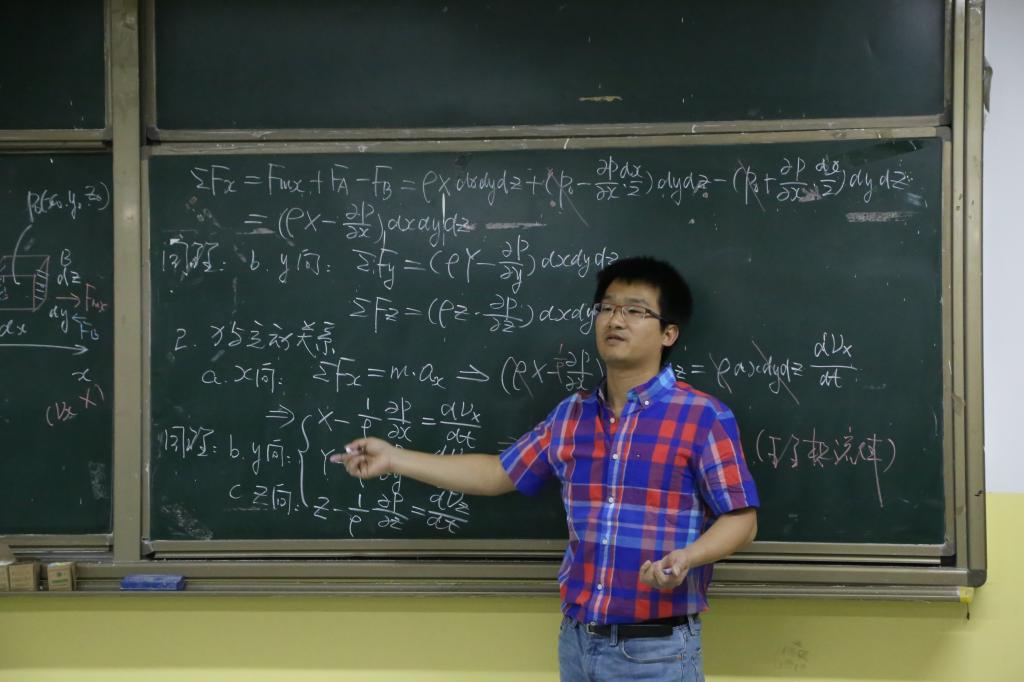 P₀(x₀,y₀,z₀)
B
dz
dy
Fmx
F_B
dx
x
(Vx X)
ΣFx = Fmx + F_A − F_B = ρX dxdydz + (P₀ − ∂P/∂x · dx/2) dydz − (P₀ + ∂P/∂x · dx/2) dydz
= (ρX − ∂P/∂x) dxdydz
同理: b. y向: ΣFy = (ρY − ∂P/∂y) dxdydz
ΣFz = (ρZ − ∂P/∂z) dxdy
2. 力与主动关系
a. x向: ΣFx = m·ax ⇒ (ρX − ∂P/∂x) z = ρ dxdydz dVx/dt
⇒ { X − 1/ρ ∂P/∂x = dVx/dt
同理: b. y向: Y
c z向: Z − 1/ρ ∂P/∂z = dVz/dt